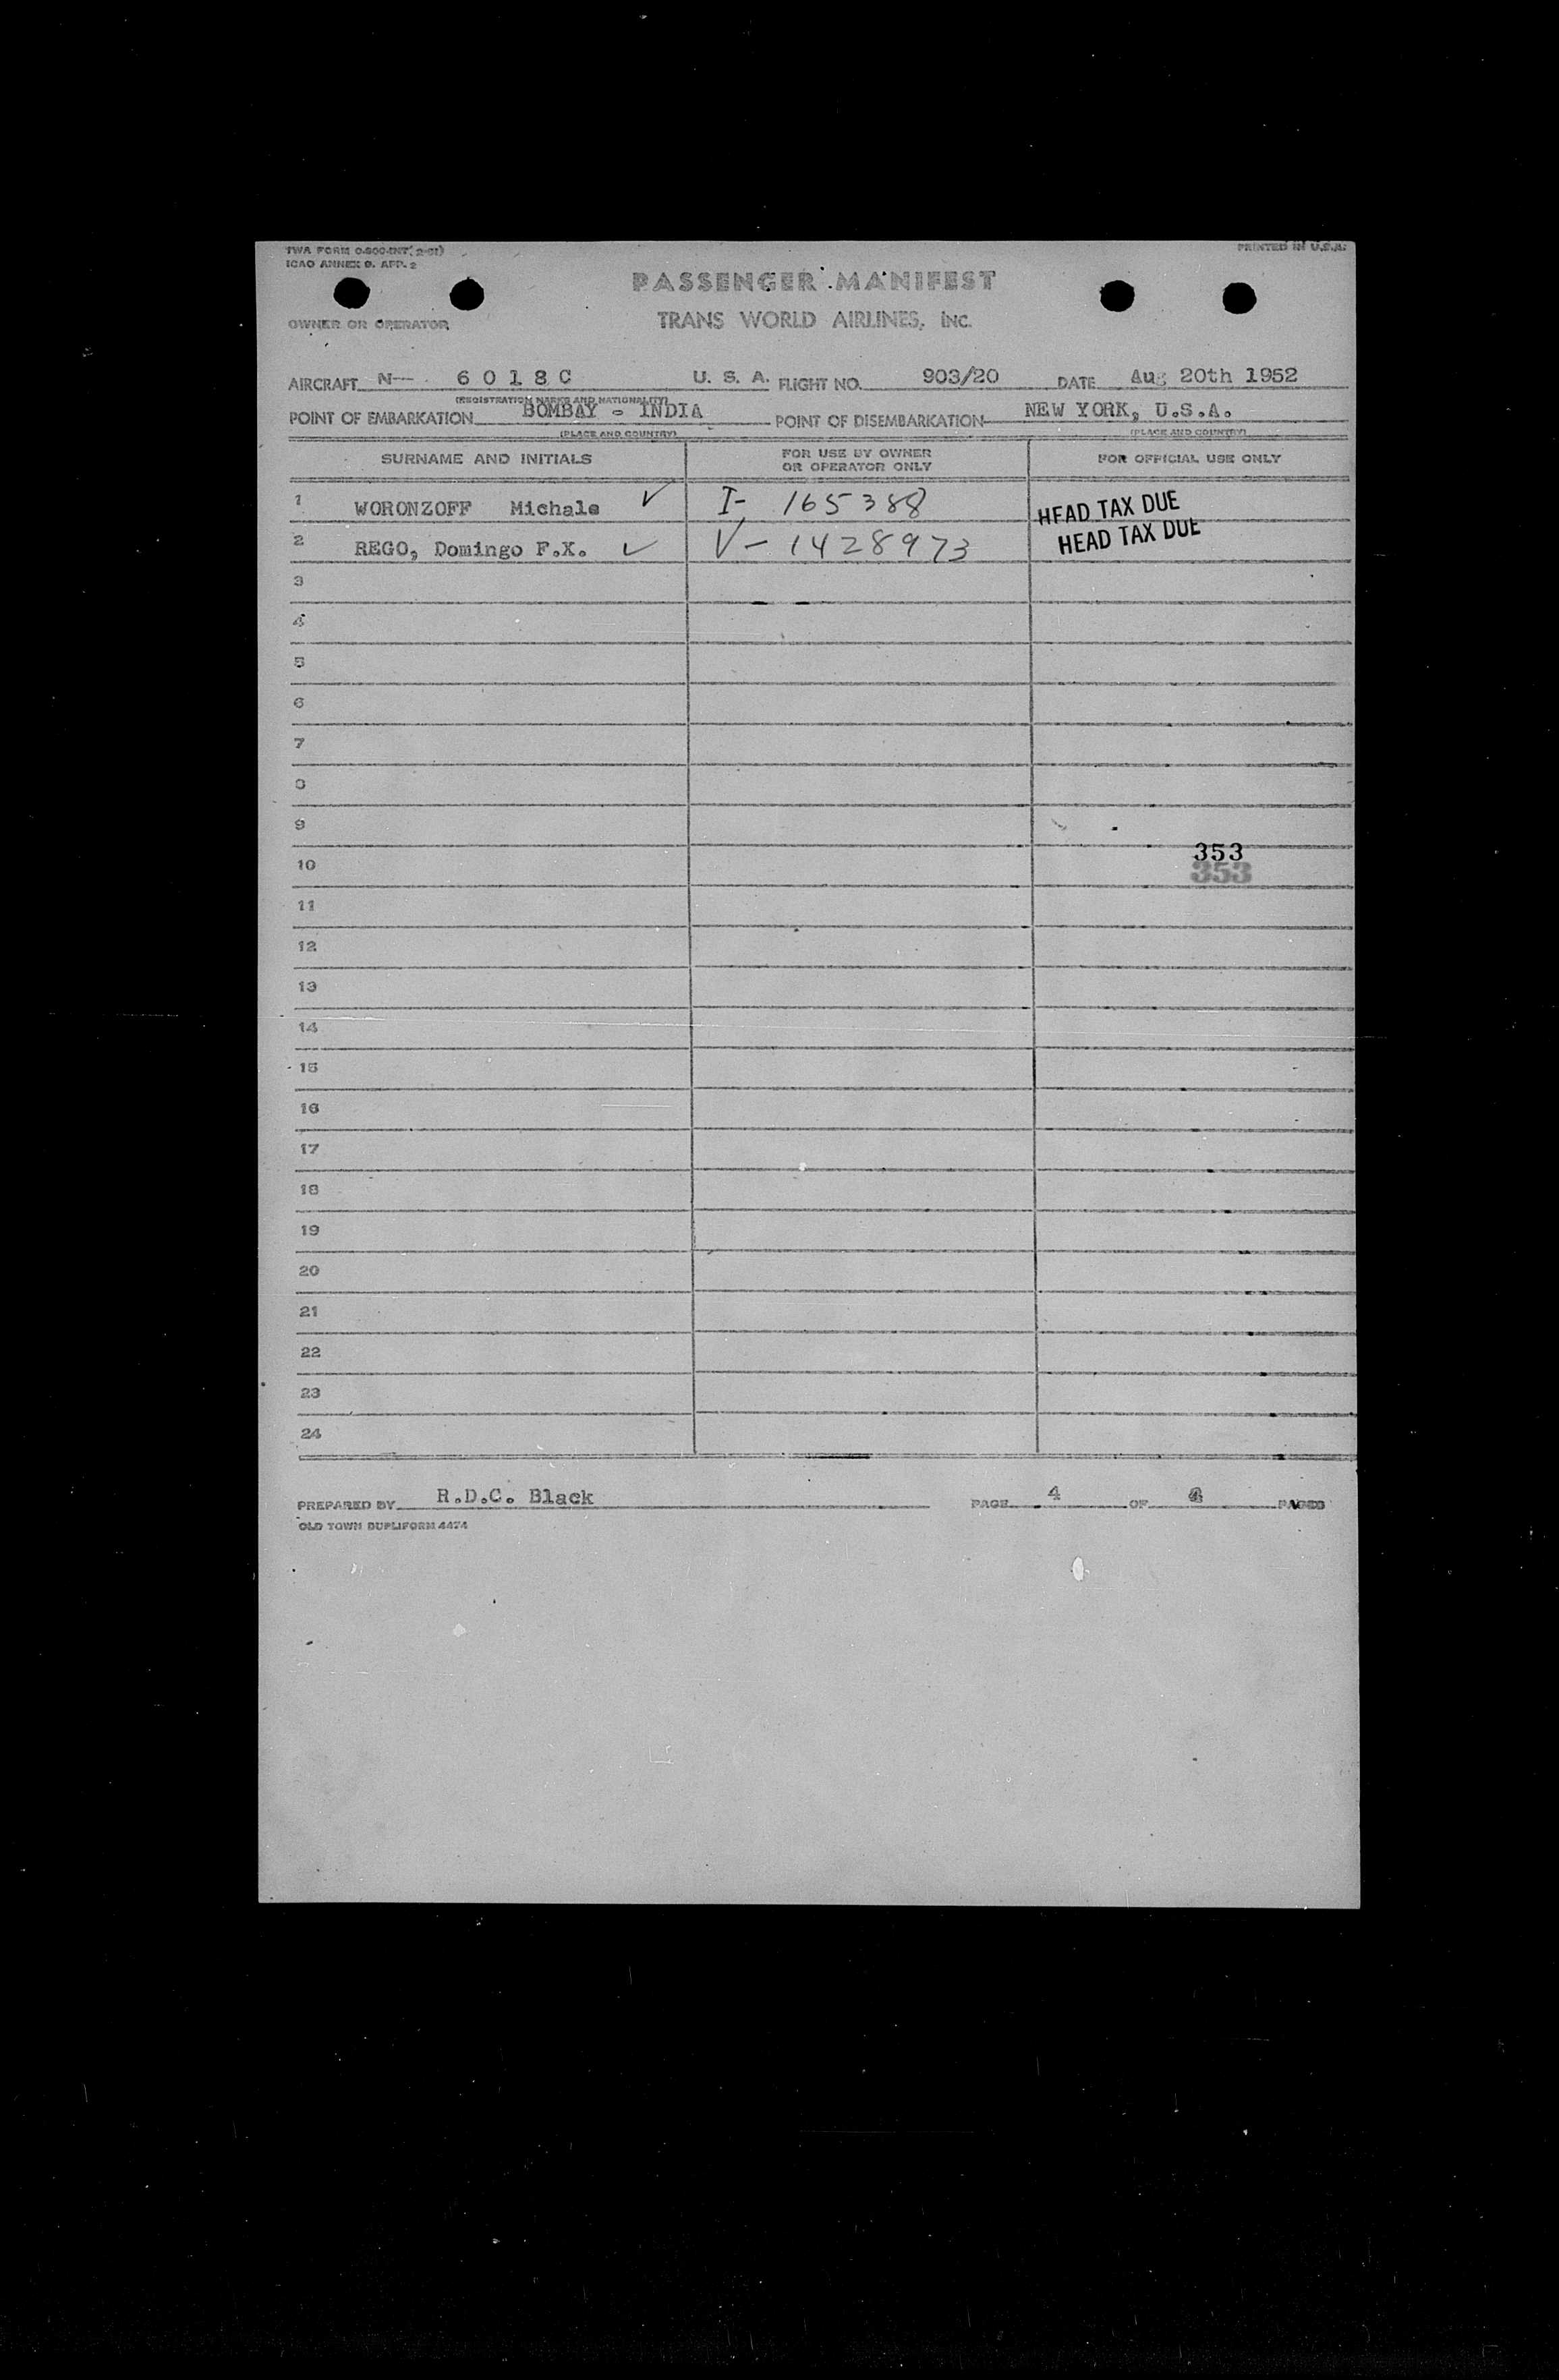 TWA FORM O-800-INT( 2-51)
ICAO ANNEX 9. APP. 2
PRINTED IN U.S.A.
PASSENGER MANIFEST
OWNER OR OPERATOR TRANS WORLD AIRLINES, INC.
AIRCRAFT N- 6 0 1 8 C U. S. A. FLIGHT NO. 903/20 DATE Aug 20th 1952
(REGISTRATION MARKS AND NATIONALITY)
POINT OF EMBARKATION BOMBAY - INDIA POINT OF DISEMBARKATION NEW YORK, U.S.A.
(PLACE AND COUNTRY) (PLACE AND COUNTRY)
SURNAME AND INITIALS FOR USE BY OWNER OR OPERATOR ONLY FOR OFFICIAL USE ONLY
1 WORONZOFF Michale ✓ I- 165388 HEAD TAX DUE
2 REGO, Domingo F.X. ✓ V- 1428973 HEAD TAX DUE
3
4
5
6
7
8
9
353
10 353
11
12
13
14
15
16
17
18
19
20
21
22
23
24
PREPARED BY R.D.C. Black PAGE 4 OF 4 PAGES
OLD TOWN DUPLIFORM 4474